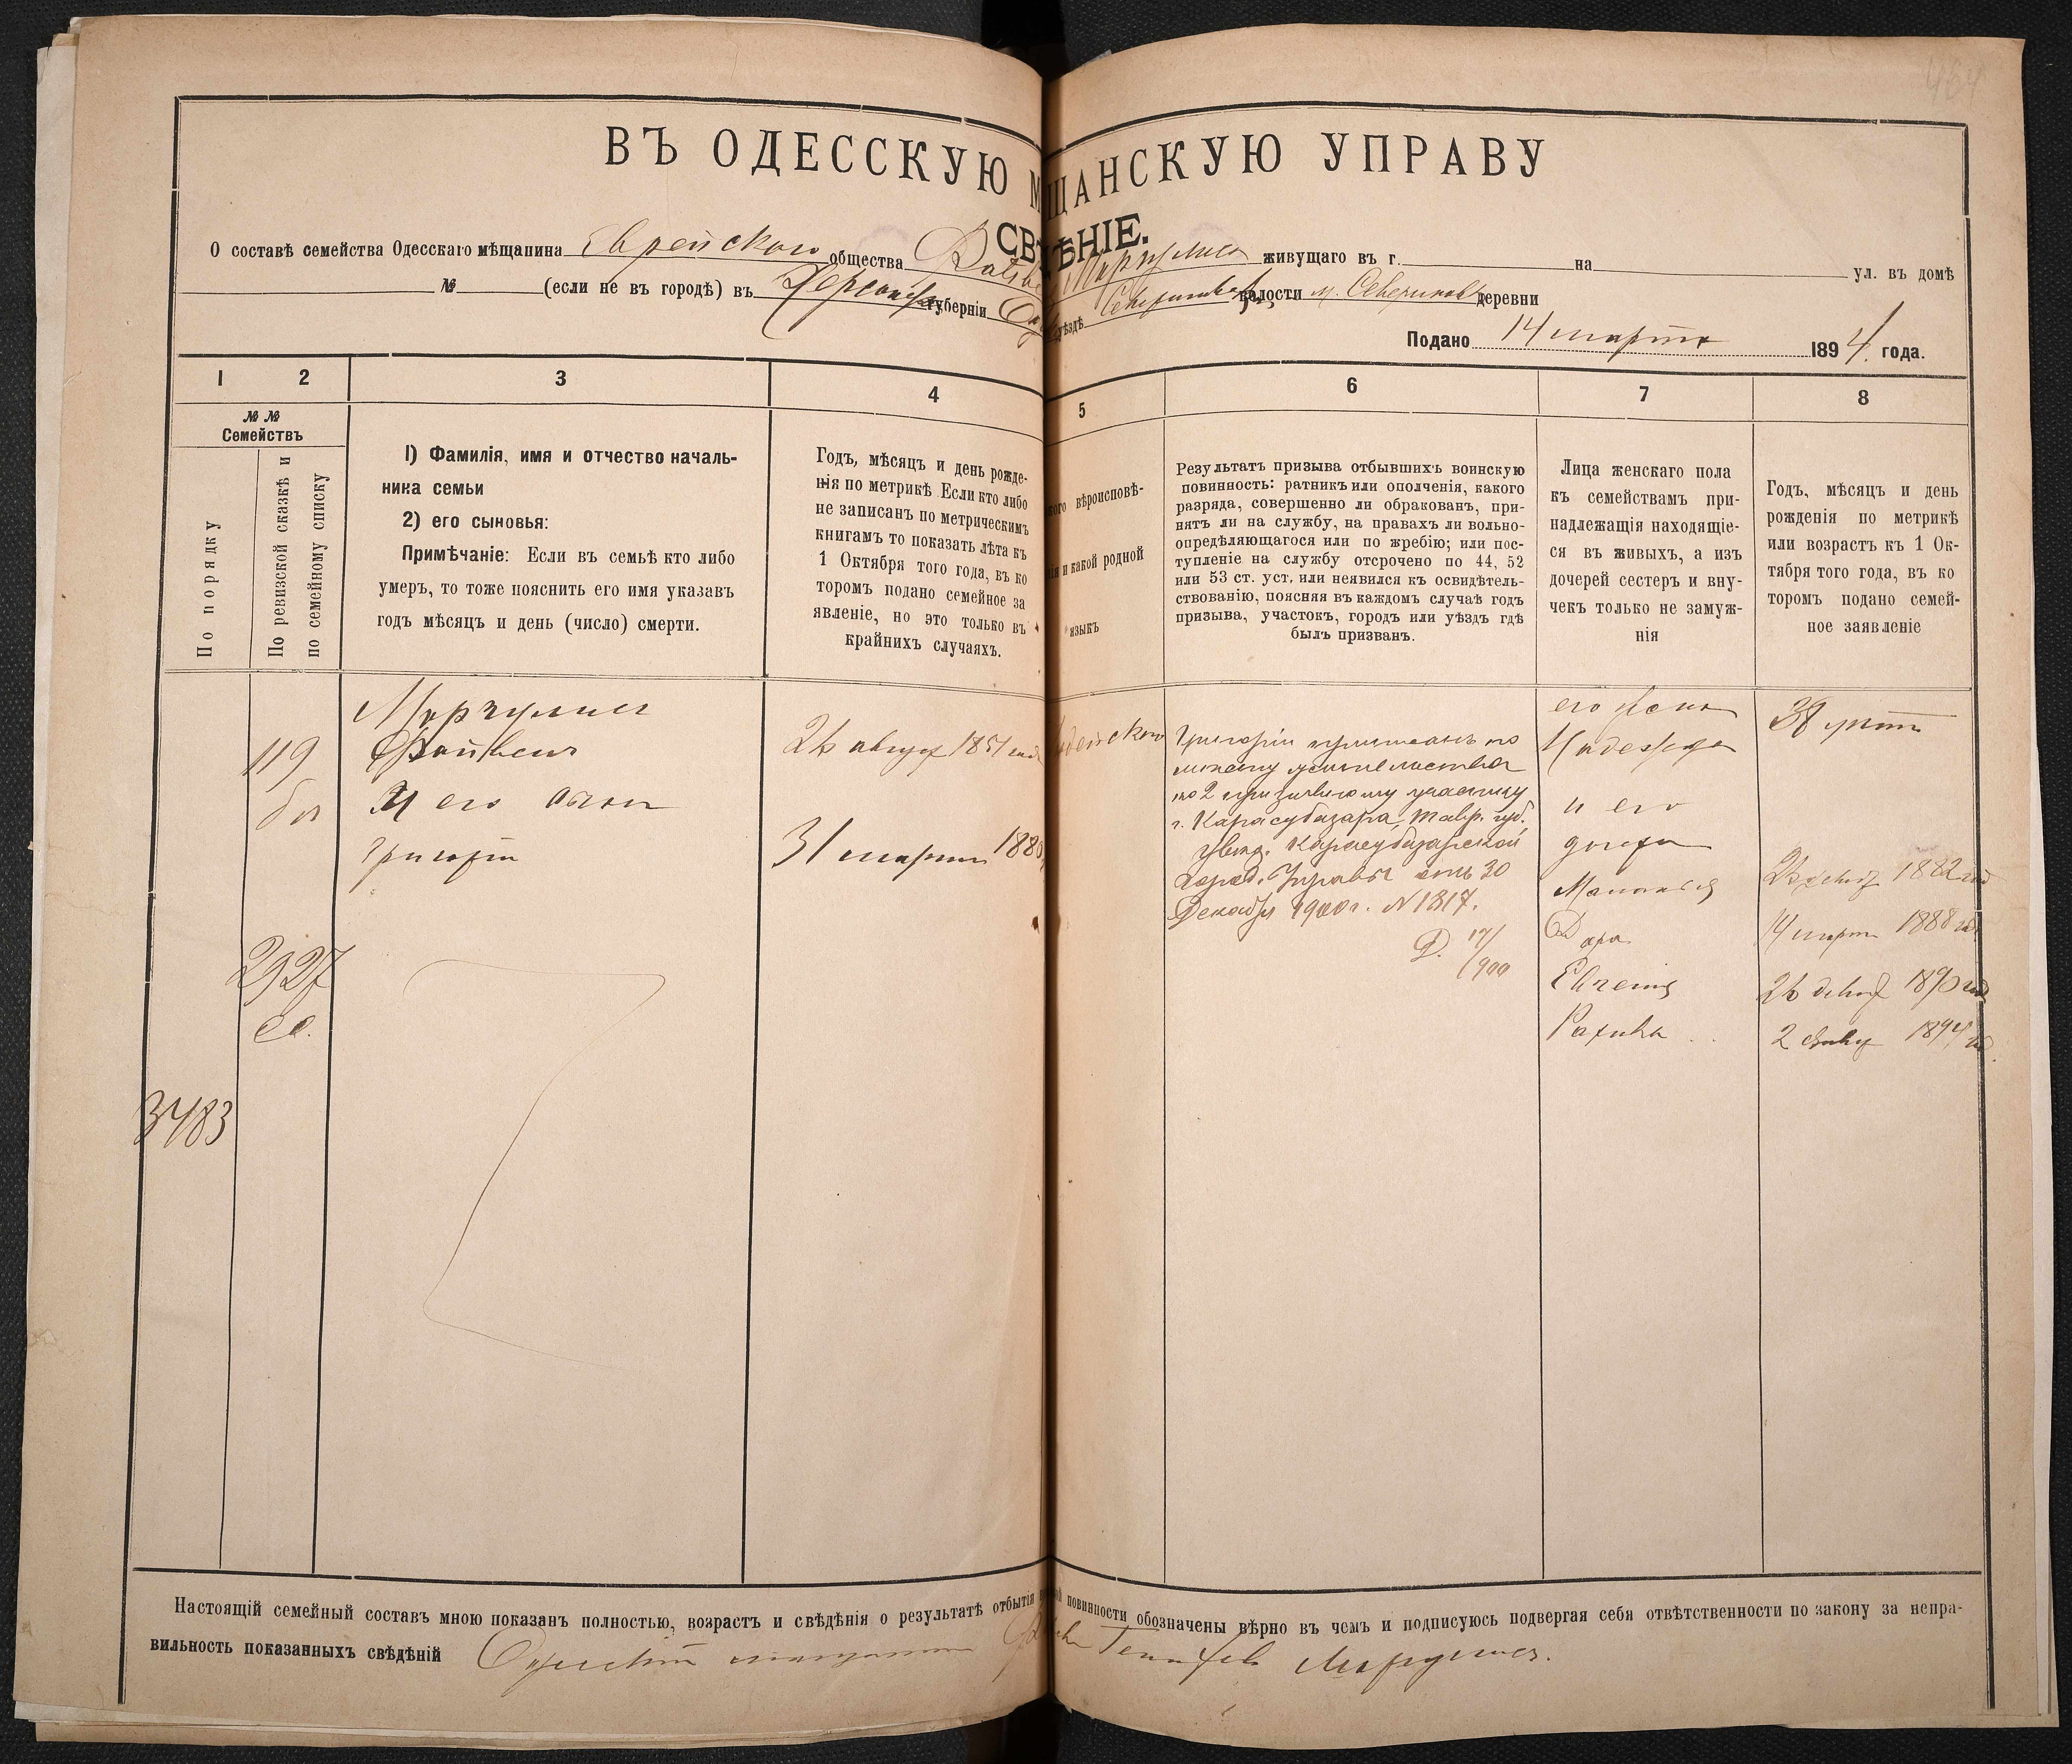 464
ВЪ ОДЕССКУЮ М ЩАНСКУЮ УПРАВУ
СВ ѢНІЕ.
О составѣ семейства Одесскаго мѣщанина Еврейскаго общества Маргулиса живущаго въ г. на ул. въ домѣ
№ (если не въ городѣ) въ Херсонской губерніи уѣздѣ волости м. Севериновка деревни
Подано 14 марта 1894 года.
1 2 3 4 5 6 7 8
№ № Семействъ
По порядку
По ревизской сказкѣ и
по семейному списку
1) Фамилія, имя и отчество началь-
ника семьи
2) его сыновья:
Примѣчаніе: Если въ семьѣ кто либо
умеръ, то тоже пояснить его имя указавъ
годъ мѣсяцъ и день (число) смерти.
Годъ, мѣсяцъ и день рожде-
нія по метрикѣ Если кто либо
не записанъ по метрическимъ
книгамъ то показать лѣта къ
1 Октября того года, въ ко
торомъ подано семейное за
явленіе, но это только въ
крайнихъ случаяхъ.
кого вѣроисповѣ-
нія и какой родной
языкъ
Результатъ призыва отбывшихъ воинскую
повинность: ратникъ или ополченія, какого
разряда, совершенно ли обракованъ, при-
нятъ ли на службу, на правахъ ли вольно-
опредѣляющагося или по жребію; или пос-
тупленіе на службу отсрочено по 44, 52
или 53 ст. уст. или неявился къ освидѣтель-
ствованію, поясняя въ каждомъ случаѣ годъ
призыва, участокъ, городъ или уѣздъ гдѣ
былъ призванъ.
Лица женскаго пола
къ семействамъ при-
надлежащія находящіе-
ся въ живыхъ, а изъ
дочерей сестеръ и вну-
чекъ только не замуж-
нія
Годъ, мѣсяцъ и день
рожденія по метрикѣ
или возрастъ къ 1 Ок-
тября того года, въ ко
торомъ подано семей-
ное заявленіе
119
2927
3483
Маргулис
Файвель
И его сынъ
Григорій
26 август 1851 год
31 марта 188
Григорій приписанъ по
мѣсту жительства
ко 2 призывному участку
г. Карасубазара, Тавр. губ.
увѣд. Карасубазарской
Город. Управы отъ 30
Декабря 1900 г. N 1817.
Д. 17/900
его жена
Надежда
и его
дочери
Дора
Евгенія
Рахиль
38 лѣтъ
1882 год
14 марта 1888 год
26 1890 год
2 1894 год.
Настоящій семейный составъ мною показанъ полностью, возрастъ и свѣдѣнія о результатѣ отбытія повинности обозначены вѣрно въ чемъ и подписуюсь подвергая себя отвѣтственности по закону за непра-
вильность показанныхъ свѣдѣній Одесскій мещанинъ Маргулис.